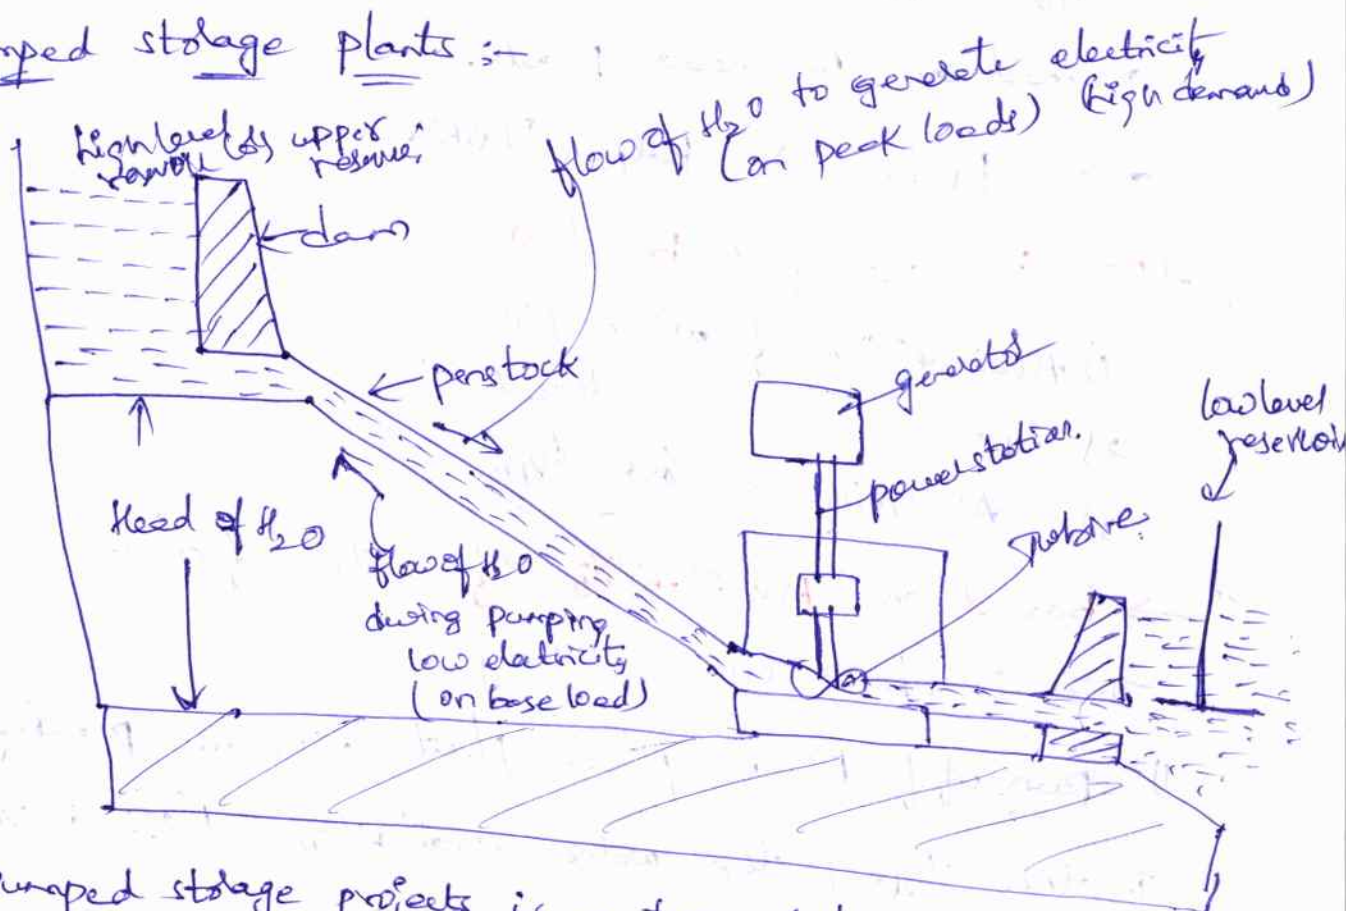 mped storage plants :-
flow of H2O to generate electricity
(on peak loads) (high demand)
high level (or) upper
dam
penstock
generator
power station.
low level
reservoir
Turbine
Head of H2O
flow of H2O
during pumping
low electricity
(on base load)
umped storage projects